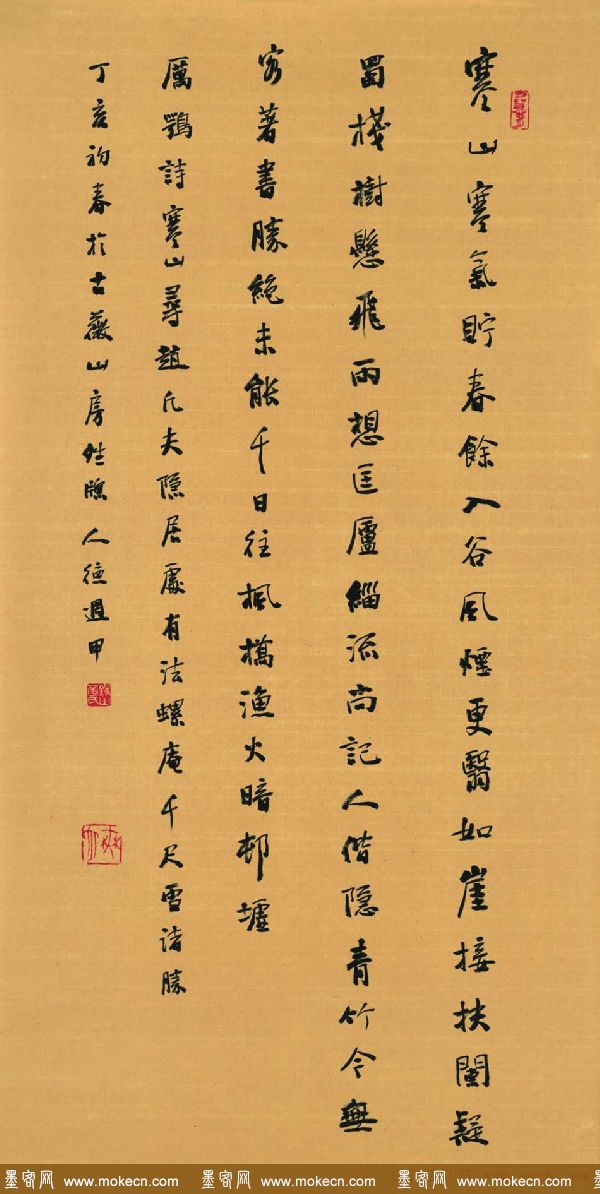 寒山寒氣貯春餘入谷風煙更翳如崖接扶闌疑
蜀棧樹懸飛雨想匡廬緇流尚記人偕隱青竹今無
客著書勝絕未能千日往楓橋漁火暗邨墟
厲鶚詩寒山尋趙凡夫隱居處有法螺庵千尺雪諸勝
丁亥初春於古薇山房人德甲
墨客网 www.mokecn.com 墨客网 www.mokecn.com 墨客网 www.mokecn.com